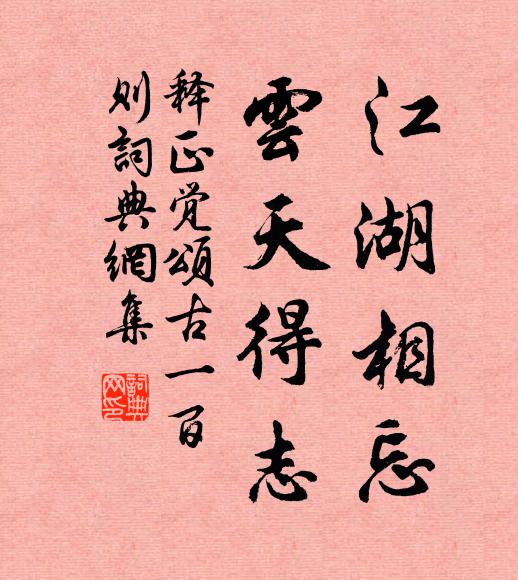 江湖相忘
雲天得志
释正觉頌古一百
则詞典網集
詞典
网印